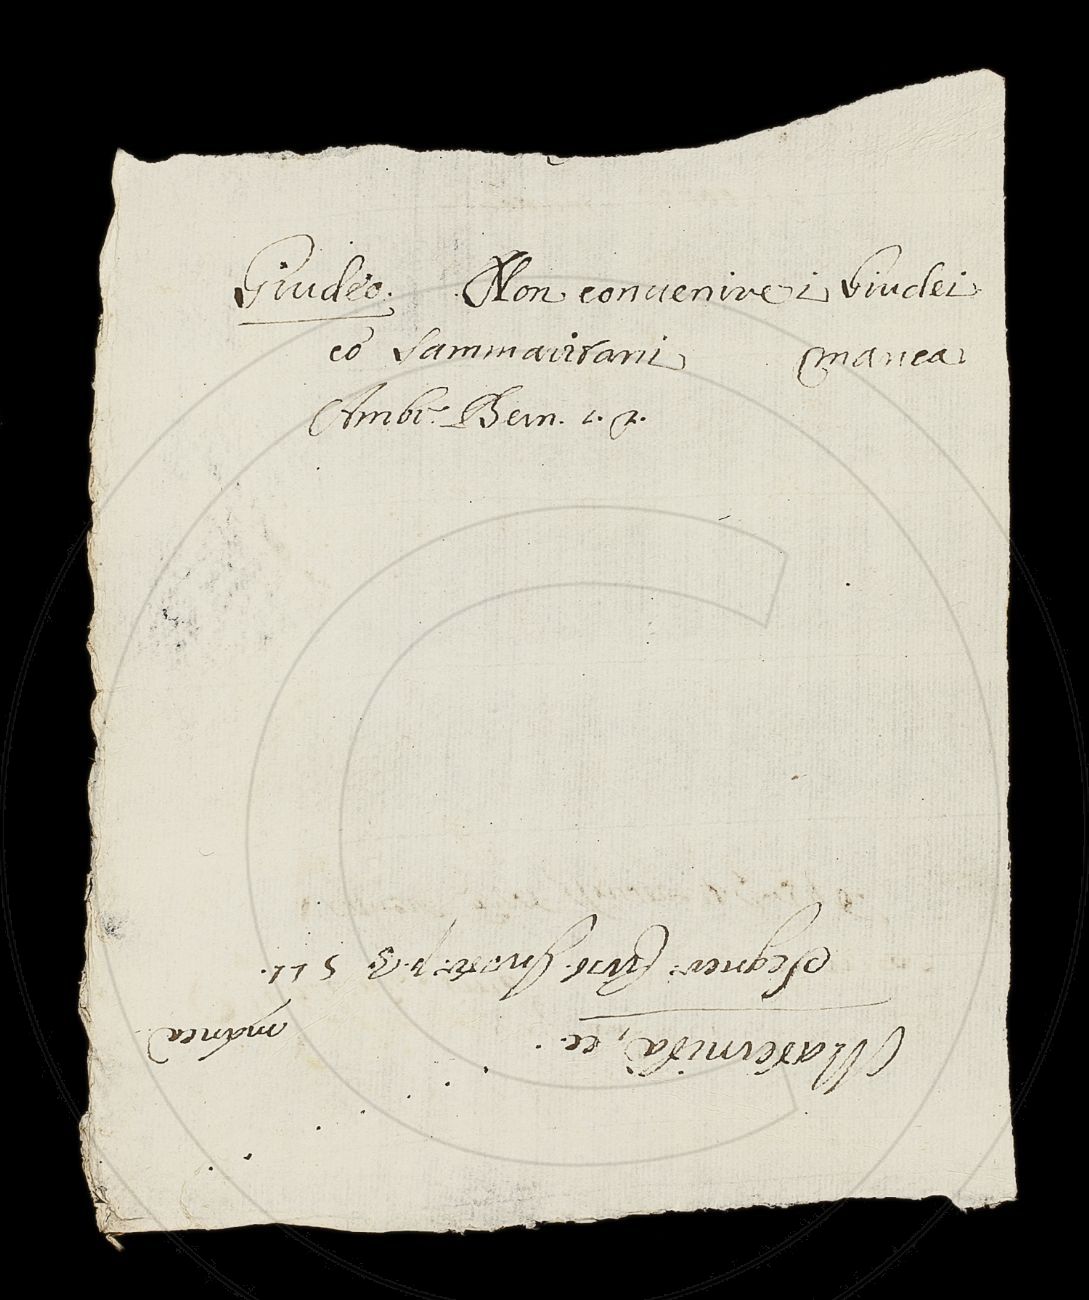 Giudeo. Non conuenire i Giudei
cō Sammaritani manca
Ambr. Bern. 1. 7.
Maternità, ec. manca
Segner. Crist. Instr. p. 3. 5 11.